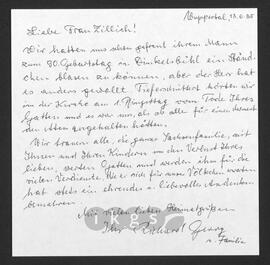 Wuppertal, 13.6.85
Liebe Frau Zillich!
Wir hatten uns schon gefreut ihrem Mann
zum 80. Geburtstag in Dinkelsbühl ein Ständ-
chen blasen zu können, aber der Herr hat
es anders gewollt. Tieferschüttert hörten wir
in der Kirche am 1. Pfingsttag vom Tode Ihres
Gatten und es war uns, als ob alle für einen Moment
den Atem angehalten hätten.
Wir trauern alle, die ganze Sachsenfamilie, mit
Ihnen und Ihren Kindern um den Verlust Ihres
lieben, werten Gatten und werden ihm für die
vielen Verdienste, die er sich für unser Völkchen erworben
hat stets ein ehrendes u. liebevolles Andenken
bewahren.
Mit vielen lieben Heimatgrüßen
Ihr Richard Georg
u. Familie